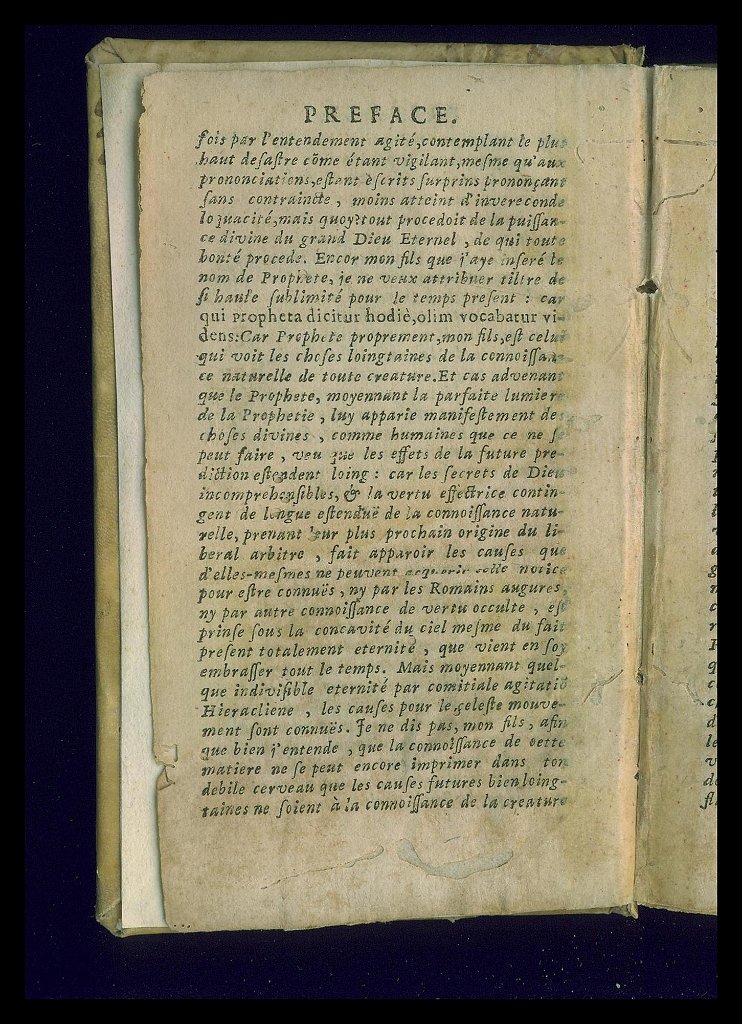 PREFACE.
fois par l'entendement agité,contemplant le plus
haut desastre cõme étant vigilant,mesme qu'aux
prononciations,estant èscrits surprins prononçant
sans contraincte , moins atteint d'inverecunde
loquacité,mais quoy?tout procedoit de la puissan-
ce divine du grand Dieu Eternel , de qui toute
bonté procede. Encor mon fils que j'aye inseré le
nom de Prophete, je ne veux attribuer tiltre de
si haute sublimité pour le temps present : car
qui propheta dicitur hodiè,olim vocabatur vi-
dens:Car Prophete proprement,mon fils,est celui
qui voit les choses loingtaines de la connoissan-
ce naturelle de toute creature.Et cas advenant
que le Prophete, moyennant la parfaite lumiere
de la Prophetie , luy apparie manifestement des
choses divines , comme humaines que ce ne se
peut faire , veu que les effets de la future pre-
diction estendent loing : car les secrets de Dieu
incomprehensibles, & la vertu effectrice contin-
gent de longue estenduë de la connoissance natu-
relle, prenant leur plus prochain origine du li-
beral arbitre , fait apparoir les causes que
d'elles-mesmes ne peuvent acquerir celle notice
pour estre connuës , ny par les Romains augures,
ny par autre connoissance de vertu occulte , est
prinse sous la concavité du ciel mesme du fait
present totalement eternité , que vient en soy
embrasser tout le temps. Mais moyennant quel-
que indivisible eternité par comitiale agitatiõ
Hieracliene , les causes pour le celeste mouve-
ment sont connuës. Je ne dis pas, mon fils , afin
que bien j'entende , que la connoissance de cette
matiere ne se peut encore imprimer dans ton
debile cerveau que les causes futures bien loing-
taines ne soient à la connoissance de la creature